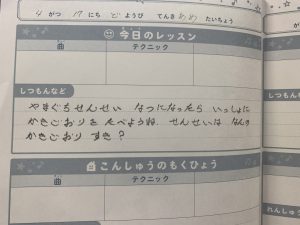 4 がつ 17 にち ど ようび てんき あめ たいちょう
今日のレッスン
テクニック
しつもんなど
やまぐちせんせい なつになったら いっしょに
かきごおりを たべようね。せんせいは なんの
かきごおり すき？
こんしゅうのもくひょう
テクニック
れんしゅう